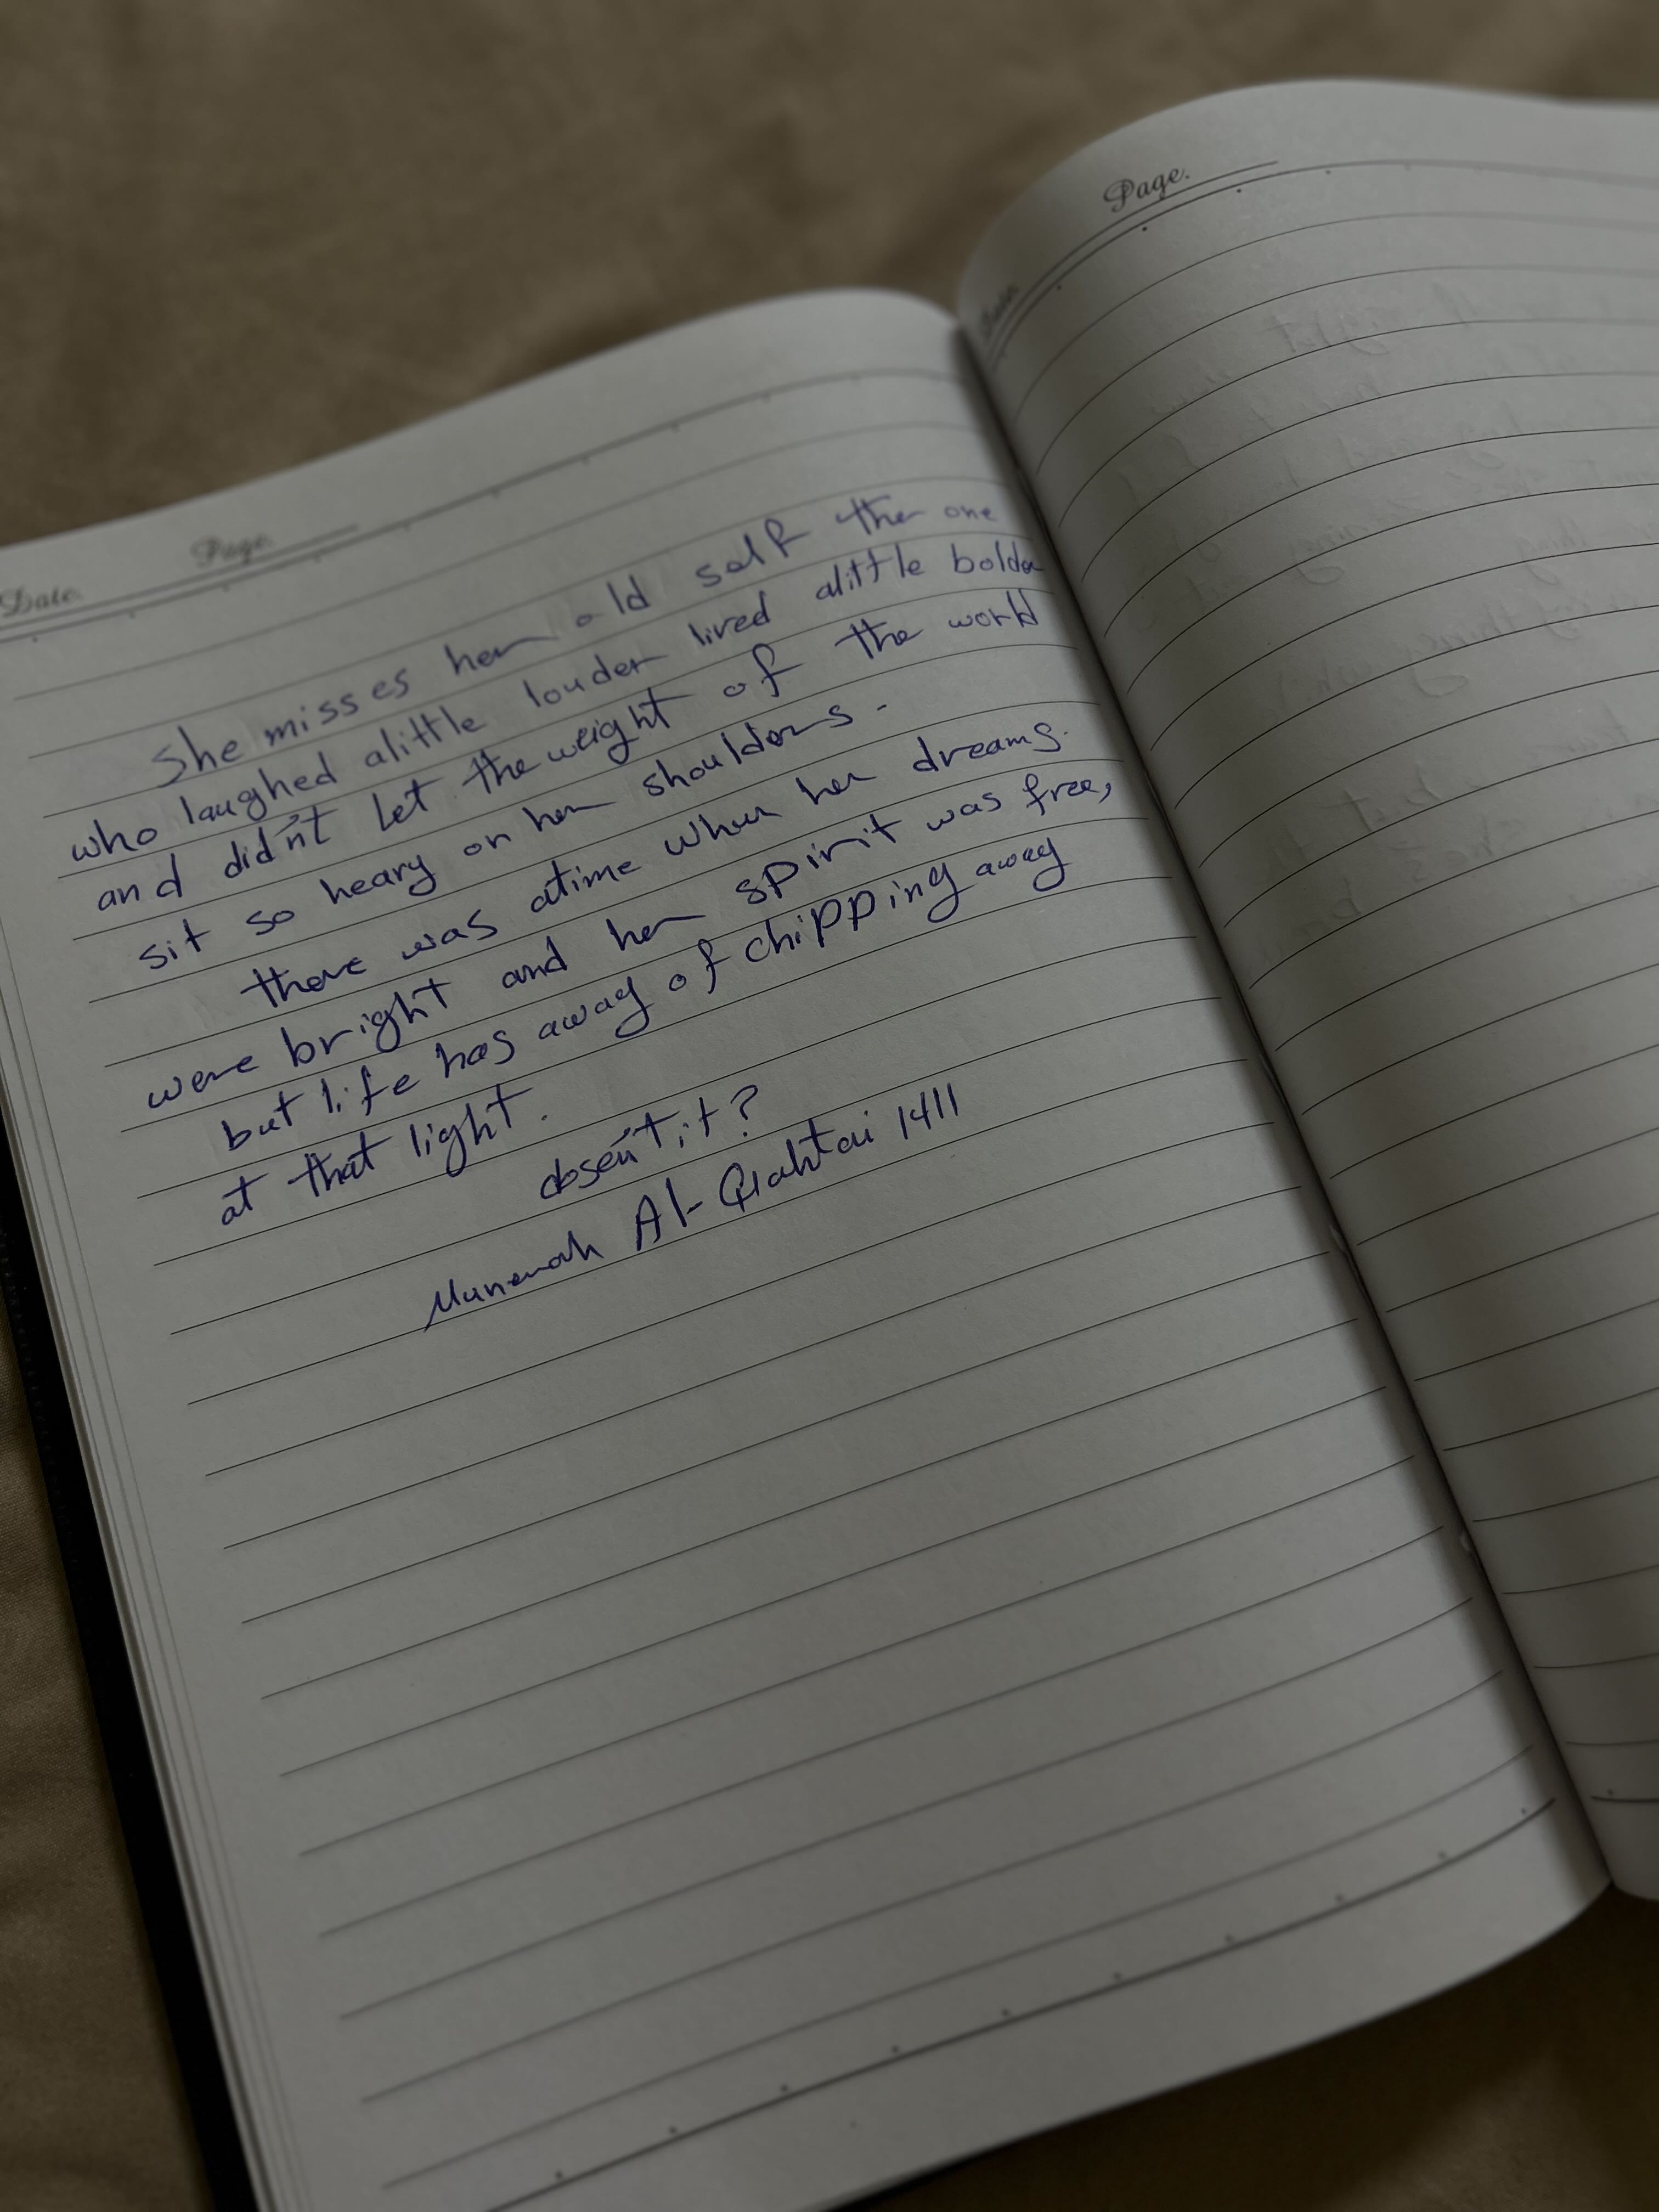 Page.
Date.
She misses her old self the one
who laughed alittle louder lived alittle bolder
and didn't let the weight of the world
sit so heavy on her shoulders.
there was atime when her dreams.
were bright and her spirit was free,
but life has away of chipping away
at that light.
dosen't it?
Munerah Al-Qahtai 1411
Page.
Date.